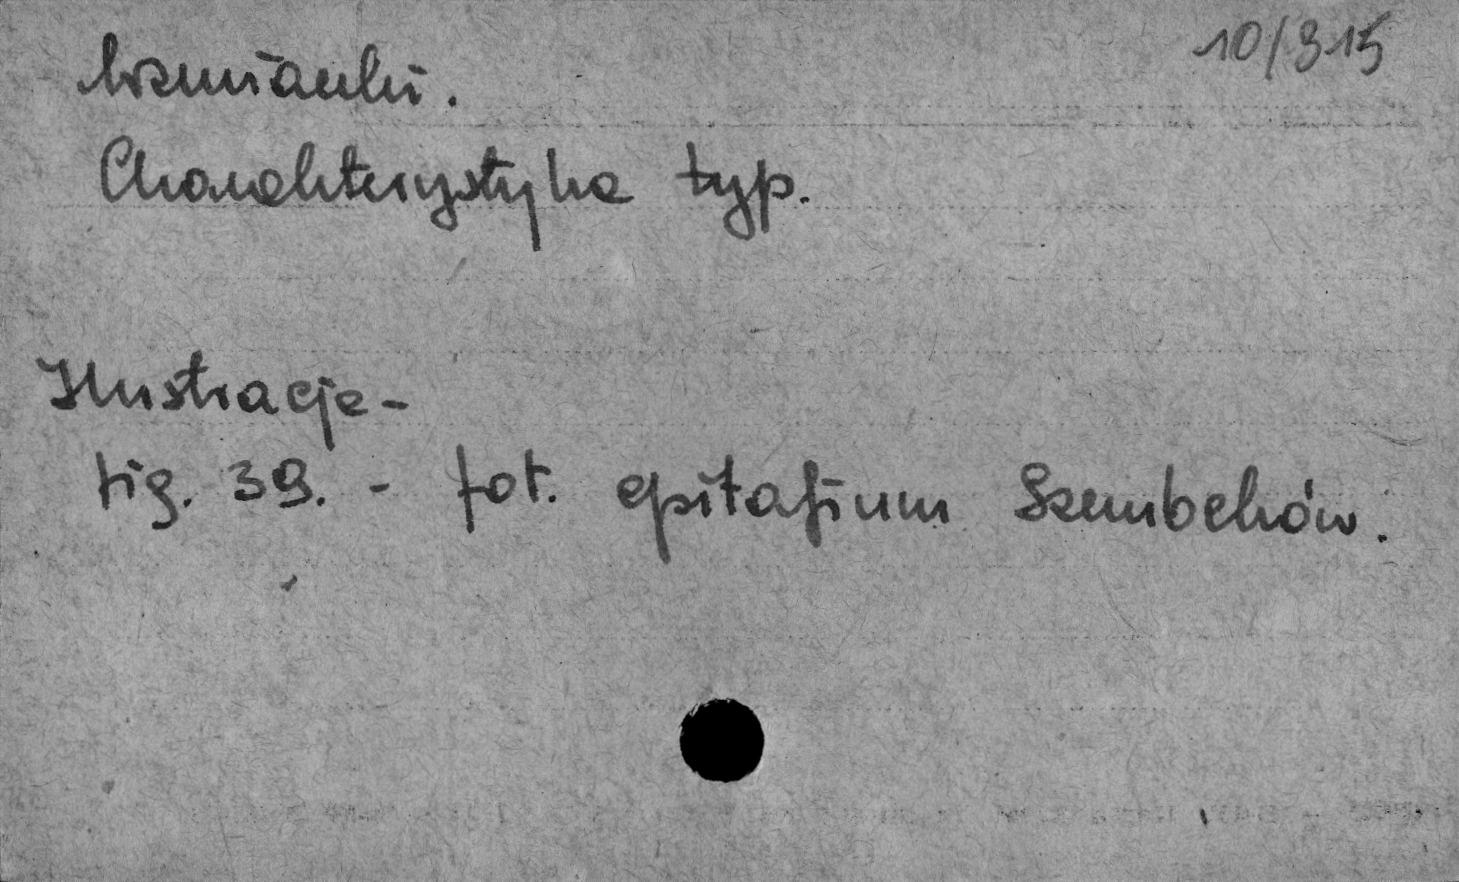 10/315
Wzmianki.
Charakterystyka typ.
Ilustracje -
fig. 39. - fot. epitafium Szembeków.